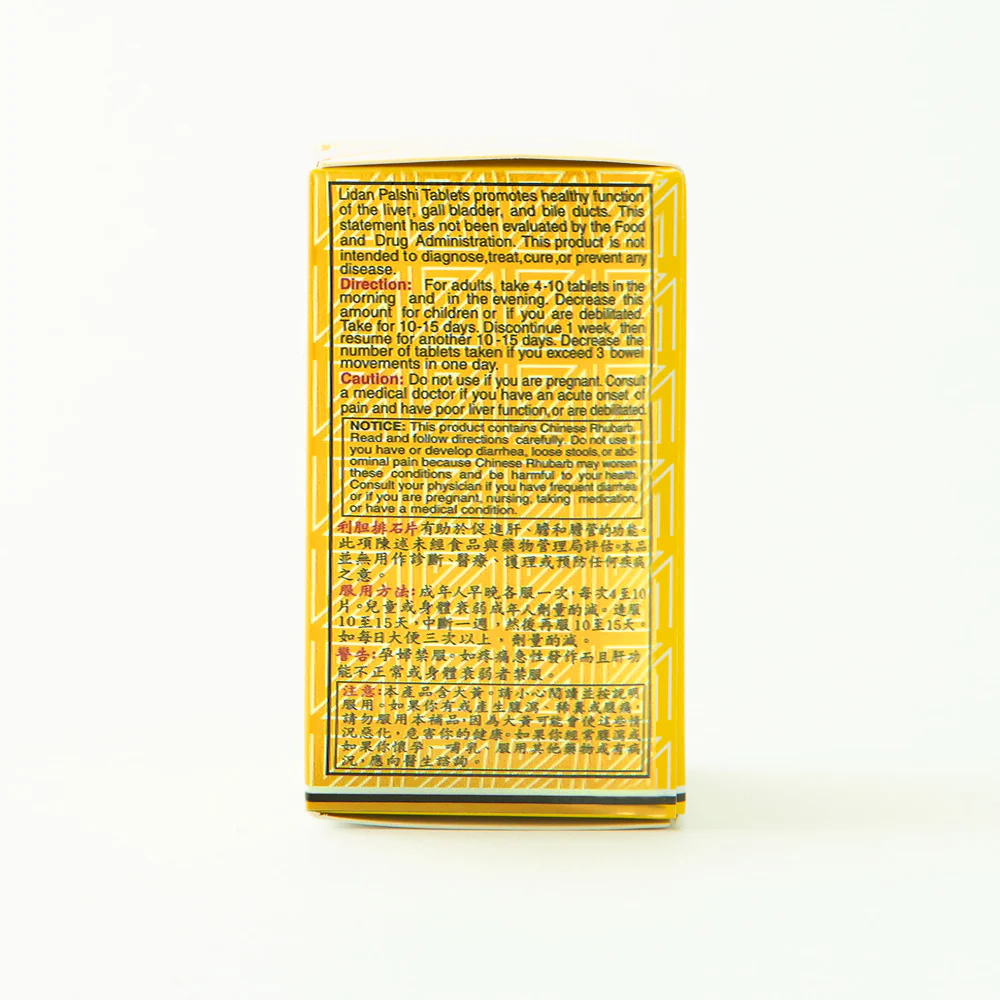 Lidan Palshi Tablets promotes healthy function
of the liver, gall bladder, and bile ducts. This
statement has not been evaluated by the Food
and Drug Administration. This product is not
intended to diagnose,treat,cure,or prevent any
disease.
Direction: For adults, take 4-10 tablets in the
morning and in the evening. Decrease this
amount for children or if you are debilitated.
Take for 10-15 days. Discontinue 1 week, then
resume for another 10-15 days. Decrease the
number of tablets taken if you exceed 3 bowel
movements in one day.
Caution: Do not use if you are pregnant. Consult
a medical doctor if you have an acute onset of
pain and have poor liver function,or are debilitated.
NOTICE: This product contains Chinese Rhubarb.
Read and follow directions carefully. Do not use if
you have or develop diarrhea, loose stools, or abd-
ominal pain because Chinese Rhubarb may worsen
these conditions and be harmful to your health.
Consult your physician if you have frequent diarrhea
or if you are pregnant, nursing, taking medication,
or have a medical condition.
利胆排石片有助於促進肝、膽和膽管的功能。
此項陳述未經食品與藥物管理局評估。本品
並無用作診斷、醫療、護理或預防任何疾病
之意。
服用方法:成年人早晚各服一次,每次4至10
片。兒童或身體衰弱成年人劑量酌減。連服
10至15天,中斷一週,然後再服10至15天。
如每日大便三次以上,劑量酌減。
警告:孕婦禁服。如疼痛急性發作而且肝功
能不正常或身體衰弱者禁服。
注意:本產品含大黃。請小心閱讀並按說明
服用。如果你有或產生腹瀉、稀糞或腹痛,
請勿服用本補品,因為大黃可能會使這些情
況惡化,危害你的健康。如果你經常腹瀉或
如果你懷孕、哺乳、服用其他藥物或有病
況,應向醫生諮詢。